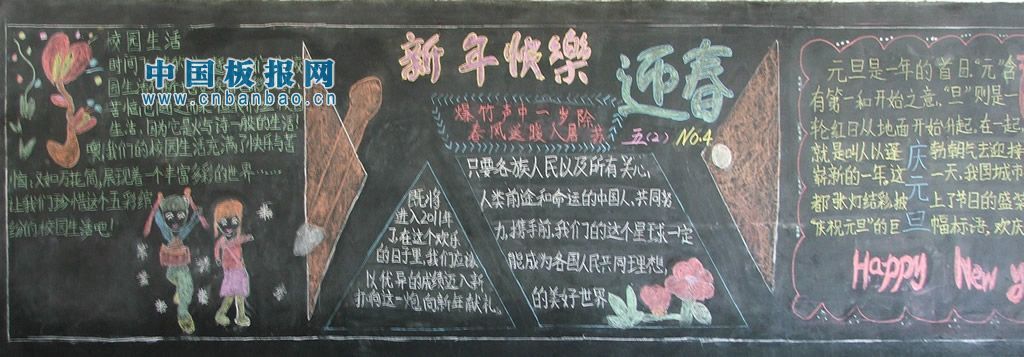 校园生活
时间
中国板报网
www.cnbanbao.cn
生活,因为它是火与诗一般的生活!
噢,我们的校园生活充满了快乐与苦
恼,又如万花筒,展现着一个丰富多彩的世界……
让我们珍惜这个五彩缤
纷的校园生活吧!
新年快樂
迎春
爆竹声中一岁除
春风送暖入屠苏
五(2) No.4
既将
进入2011年
了在这个欢乐
的日子里,我们应该
以优异的成绩迈入新
打响这一炮,向新年献礼。
只要各族人民以及所有关心,
人类前途和命运的中国人,共同努
力,携手前,我们的这个星球一定
能成为各国人民共同理想,
的美好世界
元旦是一年的首日."元"含
有第一和开始之意,"旦"则是一
轮红日从地面开始升起.在一起,
就是叫人以蓬勃朝气去迎接
崭新的一年.这一天,我国城市
都张灯结彩,披上了节日的盛装
庆祝元旦"的巨幅标语,欢庆
庆元旦
Happy New y